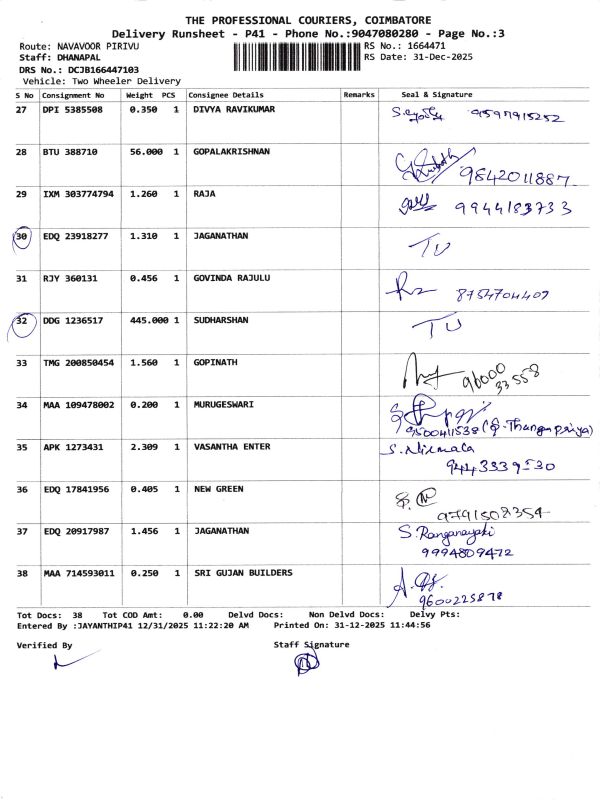 THE PROFESSIONAL COURIERS, COIMBATORE
Delivery Runsheet - P41 - Phone No.:9047080280 - Page No.:3
Route: NAVAVOOR PIRIVU RS No.: 1664471
Staff: DHANAPAL RS Date: 31-Dec-2025
DRS No.: DCJB166447103
Vehicle: Two Wheeler Delivery
S No Consignment No Weight PCS Consignee Details Remarks Seal & Signature
27 DPI 5385508 0.350 1 DIVYA RAVIKUMAR 9597915252
28 BTU 388710 56.000 1 GOPALAKRISHNAN 9842011887
29 IXM 303774794 1.260 1 RAJA 9944183733
30 EDQ 23918277 1.310 1 JAGANATHAN TU
31 RJY 360131 0.456 1 GOVINDA RAJULU 8754704407
32 DDG 1236517 445.000 1 SUDHARSHAN TU
33 TMG 200850454 1.560 1 GOPINATH 96000
33558
34 MAA 109478002 0.200 1 MURUGESWARI
9500411538 (P. Thangapriya)
35 APK 1273431 2.309 1 VASANTHA ENTER S. Nirmala
9443339530
36 EDQ 17841956 0.405 1 NEW GREEN
9791508354
37 EDQ 20917987 1.456 1 JAGANATHAN S. Ranganayaki
9994809472
38 MAA 714593011 0.250 1 SRI GUJAN BUILDERS
9600225878
Tot Docs: 38 Tot COD Amt: 0.00 Delvd Docs: Non Delvd Docs: Delvy Pts:
Entered By :JAYANTHIP41 12/31/2025 11:22:20 AM Printed On: 31-12-2025 11:44:56
Verified By Staff Signature